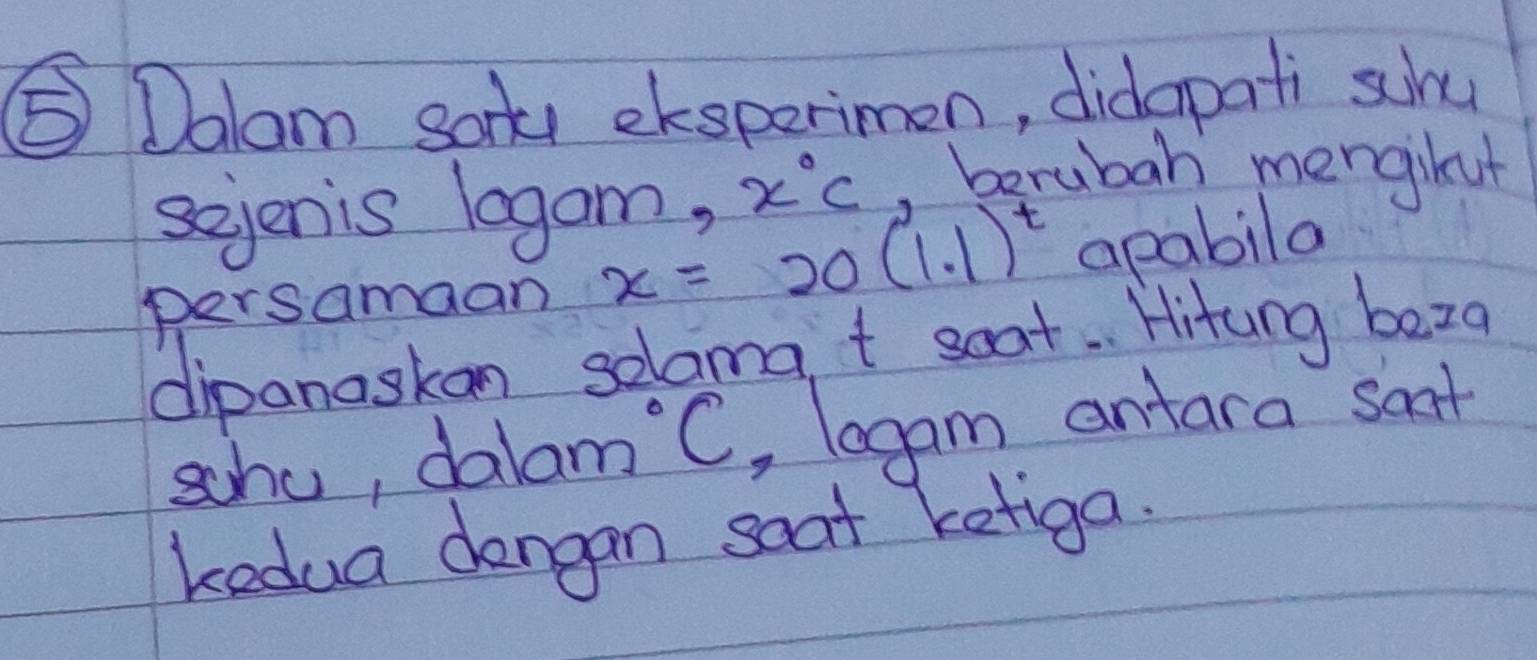 ⑤ Dalam satu eksperimen, didapati suhu
sejenis logam, x°C, berubah mengikut
persamaan x = 20 (1.1)^t apabila
dipanaskan selama t saat. Hitung beza
suhu, dalam °C, logam antara saat
kedua dengan saat ketiga.